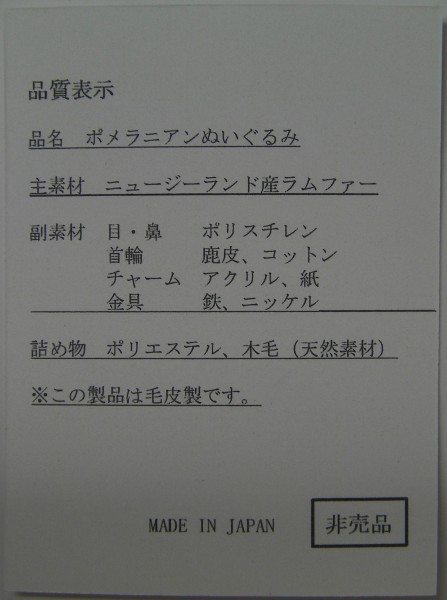 品質表示
品名　ポメラニアンぬいぐるみ
主素材　ニュージーランド産ラムファー
副素材　目・鼻　　ポリスチレン
首輪　　鹿皮、コットン
チャーム　アクリル、紙
金具　　鉄、ニッケル
詰め物　ポリエステル、木毛（天然素材）
※この製品は毛皮製です。
MADE IN JAPAN　非売品